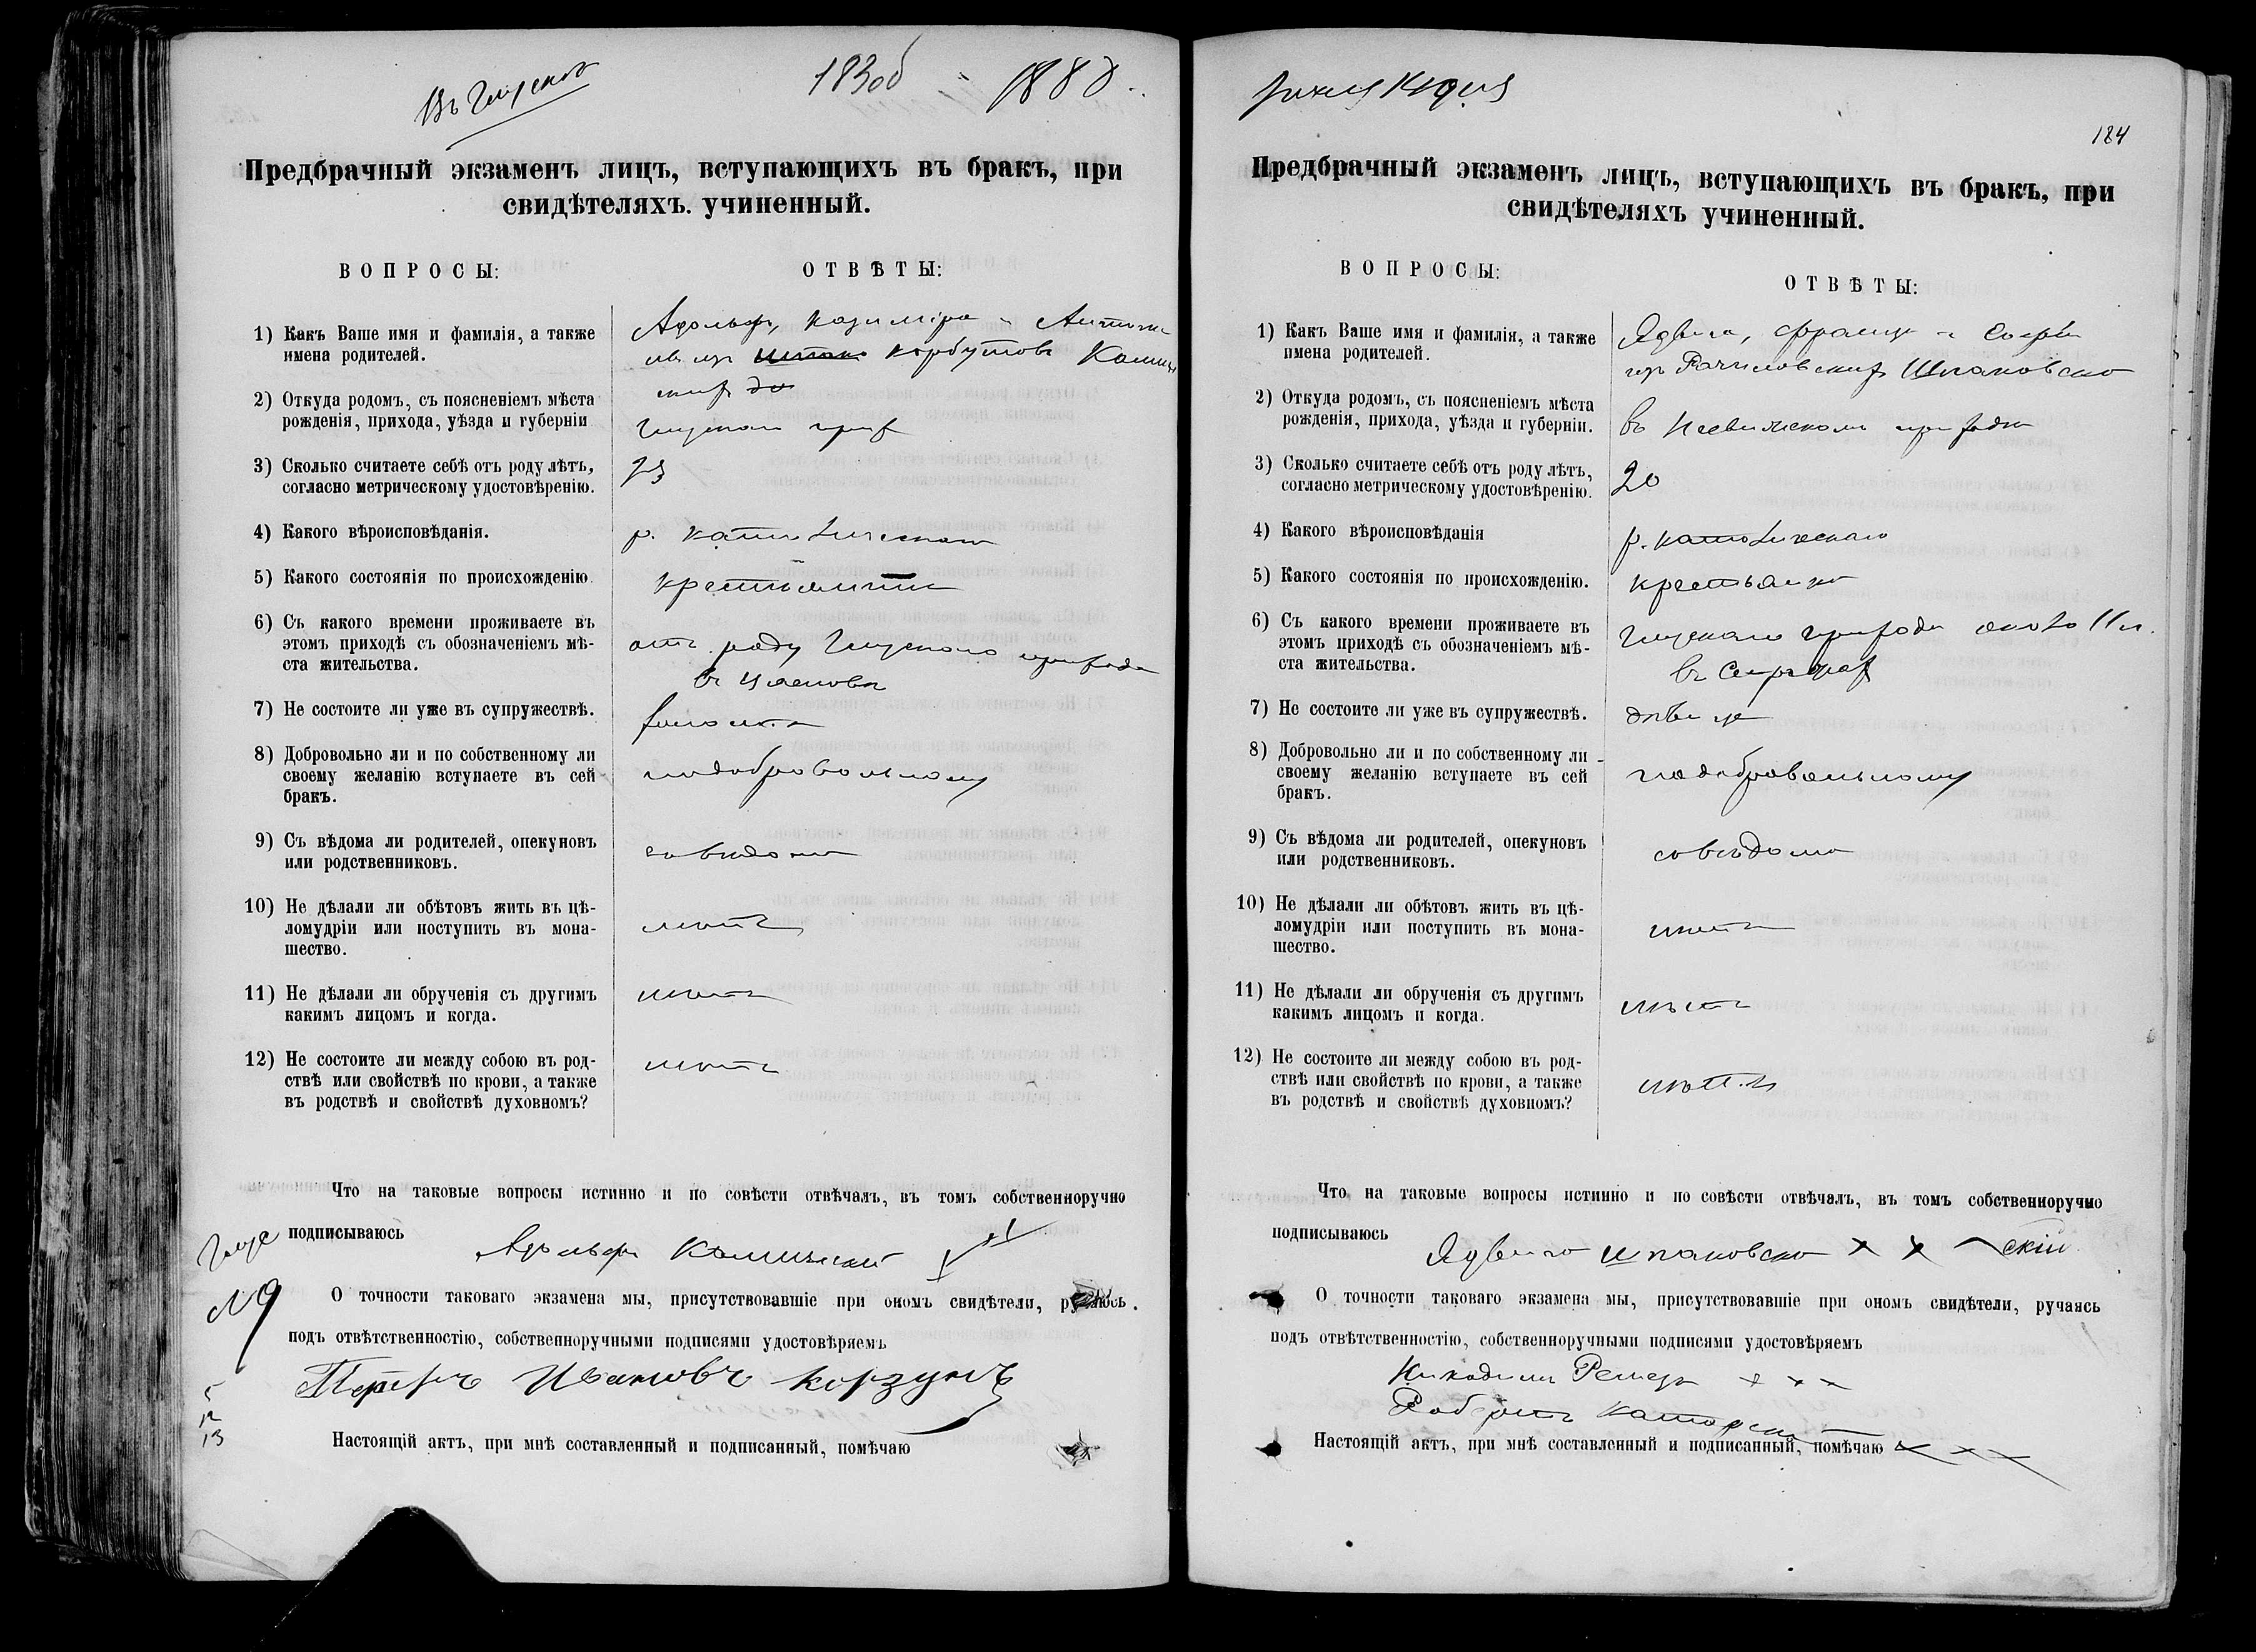 183об
1880
Предбрачный экзаменъ лицъ, вступающихъ въ бракъ, при
свидѣтеляхъ. учиненный.
ВОПРОСЫ:
ОТВѢТЫ:
1) Какъ Ваше имя и фамилія, а также
имена родителей.
Адольфъ, Казиміра и
Корбутовъ
2) Откуда родомъ, съ поясненіемъ мѣста
рожденія, прихода, уѣзда и губерніи
3) Сколько считаете себѣ отъ роду лѣтъ,
согласно метрическому удостовѣренію.
23
4) Какого вѣроисповѣданія.
р. католическаго
5) Какого состоянія по происхожденію.
крестьянинъ
6) Съ какого времени проживаете въ
этомъ приходѣ съ обозначеніемъ мѣ-
ста жительства.
отъ роду прихода
7) Не состоите ли уже въ супружествѣ.
8) Добровольно ли и по собственному ли
своему желанію вступаете въ сей
бракъ.
подобровольному
9) Съ вѣдома ли родителей, опекуновъ
или родственниковъ.
совѣдома
10) Не дѣлали ли обѣтовъ жить въ цѣ-
ломудріи или поступить въ мона-
шество.
нѣтъ
11) Не дѣлали ли обрученія съ другимъ
какимъ лицомъ и когда.
нѣтъ
12) Не состоите ли между собою въ род-
ствѣ или свойствѣ по крови, а также
въ родствѣ и свойствѣ духовномъ?
нѣтъ
Что на таковые вопросы истинно и по совѣсти отвѣчалъ, въ томъ собственноручно
подписываюсь
Адольфъ
О точности таковаго экзамена мы, присутствовавшіе при ономъ свидѣтели,
подъ отвѣтственностію, собственноручными подписями удостовѣряемъ
№ 9
Иванов Корзунъ
5
12
13
Настоящій актъ, при мнѣ составленный и подписанный, помѣчаю
184
Предбрачный экзаменъ лицъ, вступающихъ въ бракъ, при
свидѣтеляхъ учиненный.
ВОПРОСЫ:
ОТВѢТЫ:
1) Какъ Ваше имя и фамилія, а также
имена родителей.
Ядвига, Франца и Софіи
Шпаковска
2) Откуда родомъ, съ поясненіемъ мѣста
рожденія, прихода, уѣзда и губерніи.
въ приходѣ
3) Сколько считаете себѣ отъ роду лѣтъ,
согласно метрическому удостовѣренію.
20
4) Какого вѣроисповѣданія
р. католическаго
5) Какого состоянія по происхожденію.
крестьянка
6) Съ какого времени проживаете въ
этомъ приходѣ съ обозначеніемъ мѣ-
ста жительства.
прихода около 11 л.
7) Не состоите ли уже въ супружествѣ.
дѣвица
8) Добровольно ли и по собственному ли
своему желанію вступаете въ сей
бракъ.
подобровольному
9) Съ вѣдома ли родителей, опекуновъ
или родственниковъ.
совѣдома
10) Не дѣлали ли обѣтовъ жить въ цѣ-
ломудріи или поступить въ мона-
шество.
нѣтъ
11) Не дѣлали ли обрученія съ другимъ
какимъ лицомъ и когда.
нѣтъ
12) Не состоите ли между собою въ род-
ствѣ или свойствѣ по крови, а также
въ родствѣ и свойствѣ духовномъ?
нѣтъ
Что на таковые вопросы истинно и по совѣсти отвѣчалъ, въ томъ собственноручно
подписываюсь
Ядвига Шпаковска х х скій
О точности таковаго экзамена мы, присутствовавшіе при ономъ свидѣтели, ручаясь
подъ отвѣтственностію, собственноручными подписями удостовѣряемъ
Никодимъ х х х
Робертъ
Настоящій актъ, при мнѣ составленный и подписанный, помѣчаю х х х